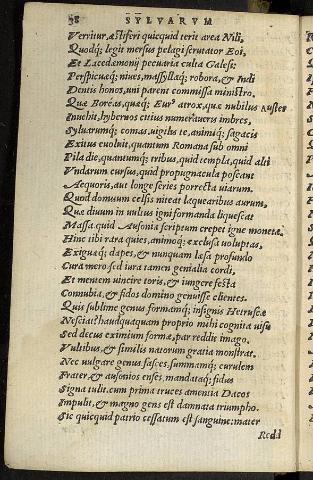 58 SYLVARVM
Verritur, æstiferi quicquid terit area Nili,
Quodq; legit mersus pelagi scrutator Eoi,
Et Lacedæmonij pecuaria culta Galesi;
Perspicuæq; niues, massyllaq; robora, & Indi
Dentis honos, uni parent commissa ministro.
Quæ Boreas, quæq; Eurꝰ atrox, quæ nubilus Auster
Inuehit, hybernos citius numeraueris imbres,
Syluarumq; comas, uigilis te, animiq; sagacis
Exitus euoluit, quantum Romana sub omni
Pila die, quantumq; tribus, quid templa, quid alti
Vndarum cursus, quid propugnacula poscant
Aequoris, aut longe series porrecta uiarum.
Quod domuum celsis niteat laquearibus aurum,
Quæ diuum in uultus igni formanda liquescat
Massa, quid Ausoniæ scriptum crepet igne monetæ.
Hinc tibi rara quies, animoq; exclusa uoluptas,
Exiguæq; dapes, & nunquam læsa profundo
Cura mero sed iura tamen genialia cordi,
Et mentem uincire toris, & iungere festa
Connubia, & fidos domino genuisse clientes.
Quis sublime genus formamq; insignis Hetruscæ
Nesciat? haudquaquam proprio mihi cognita uisu
Sed decus eximium formæ, par reddit imago,
Vultibus, & similis natorum gratia monstrat.
Nec uulgare genus fasces, summamq; curulem
Frater, & ausonios enses, mandataq; fidus
Signa tulit, cum prima truces amentia Dacos
Impulit, & magno gens est damnata triumpho.
Sic quicquid patrio cessatum est sanguine: mater
Redd